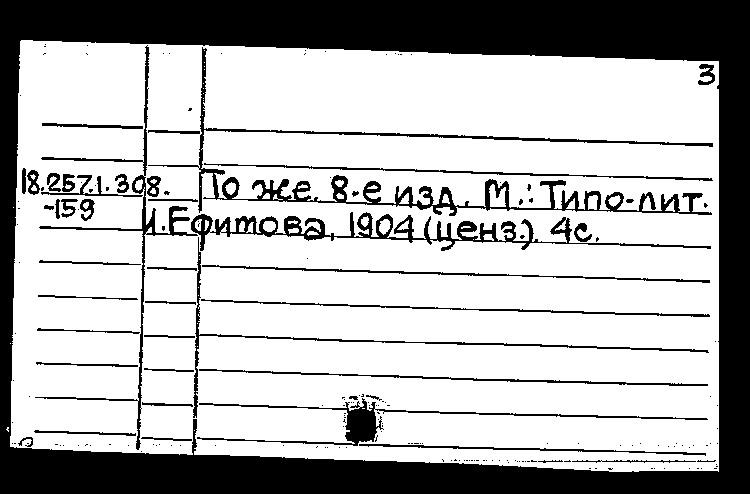 3
18.257.1.308. То же. 8-е изд. М.: Типо-лит.
-159 И.Ефитова, 1904 (ценз.). 4с.